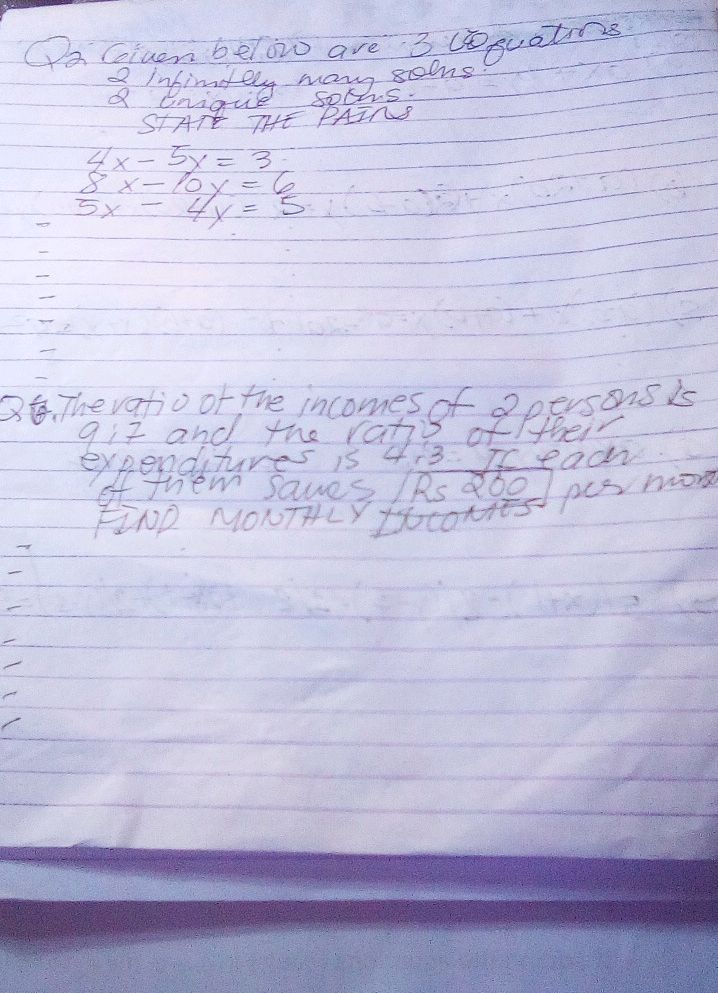 Q2 Given below are 3 equations
2 infinitely many solns.
2 unique solns.
STATE THE PAIRS
4x - 5y = 3
8x - 10y = 6
5x - 4y = 5
The ratio of the incomes of 2 persons is
9:7 and the ratio of their
expenditures is 4:3. If each
of them saves Rs 200 per
FIND MONTHLY INCOMES